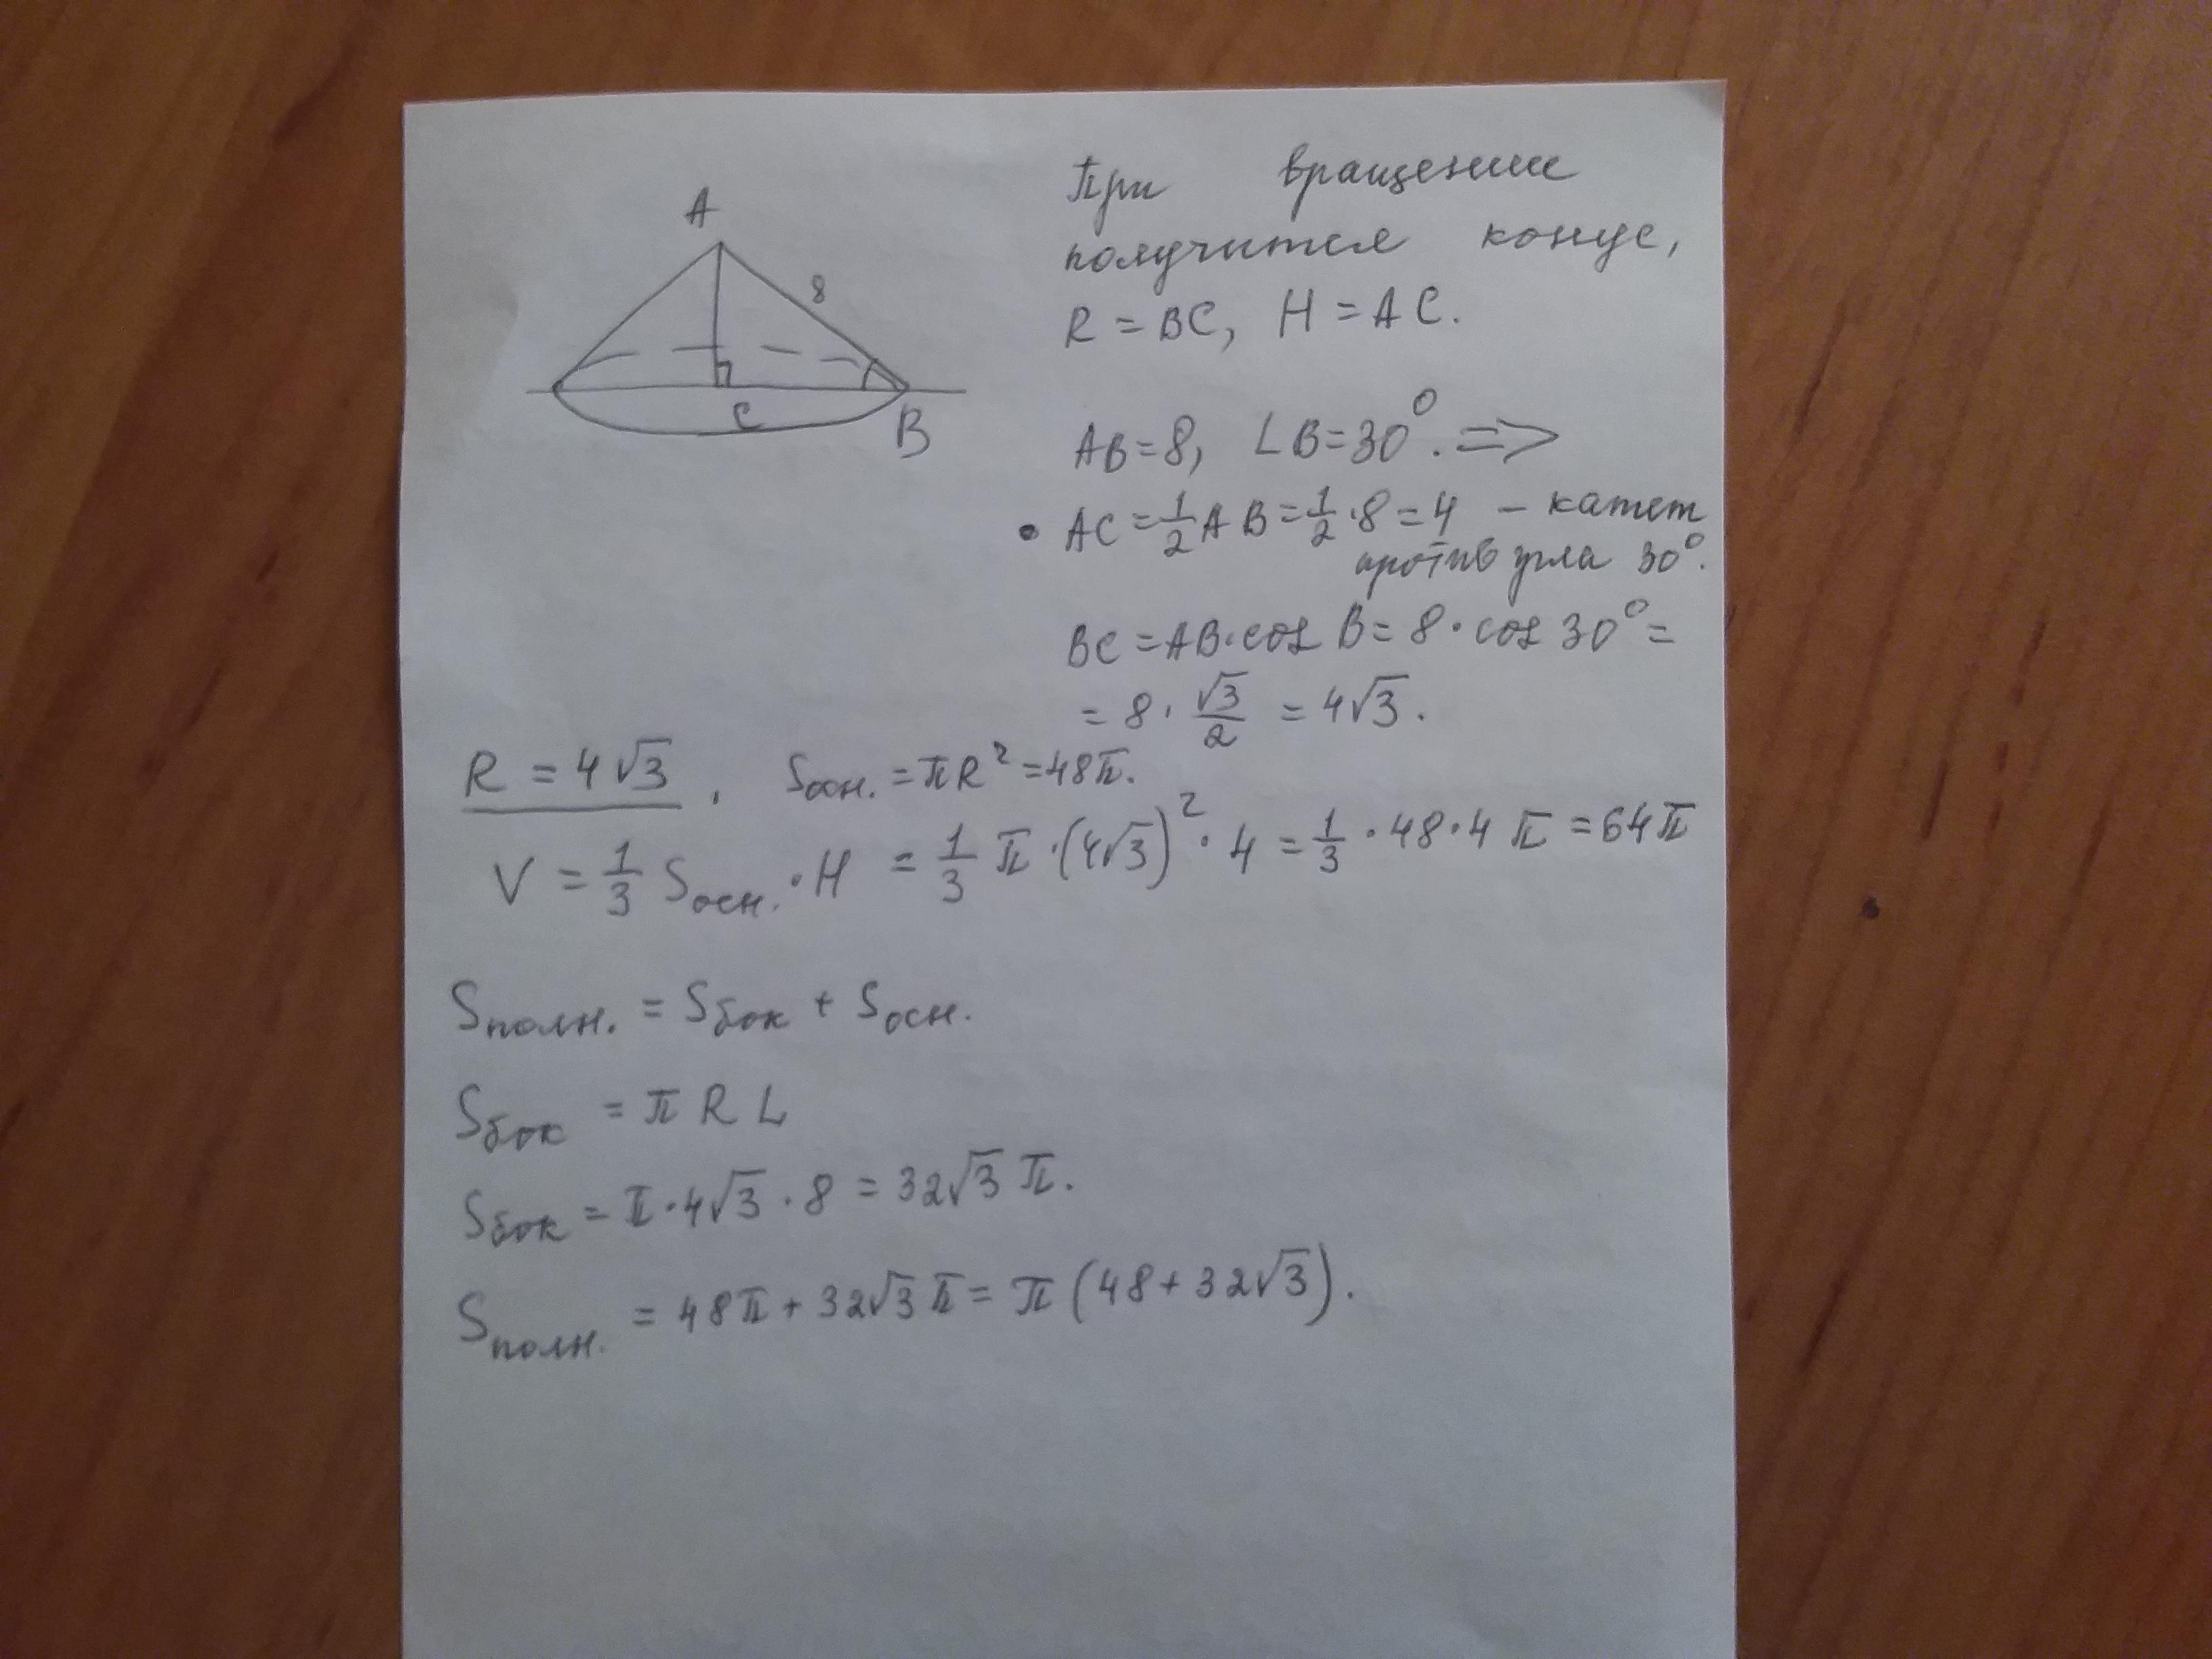 A
8
C
B
При вращении
получится конус,
R = BC, H = AC.
AB = 8, ∠B = 30°. =>
• AC = 1/2 AB = 1/2 · 8 = 4 – катет
против угла 30°.
BC = AB · cos B = 8 · cos 30° =
= 8 · √3/2 = 4√3.
R = 4√3, Sосн. = πR² = 48π.
V = 1/3 Sосн. · H = 1/3 π · (4√3)² · 4 = 1/3 · 48 · 4 π = 64π
Sполн. = Sбок + Sосн.
Sбок = π R L
Sбок = π · 4√3 · 8 = 32√3 π.
Sполн. = 48π + 32√3 π = π (48 + 32√3).